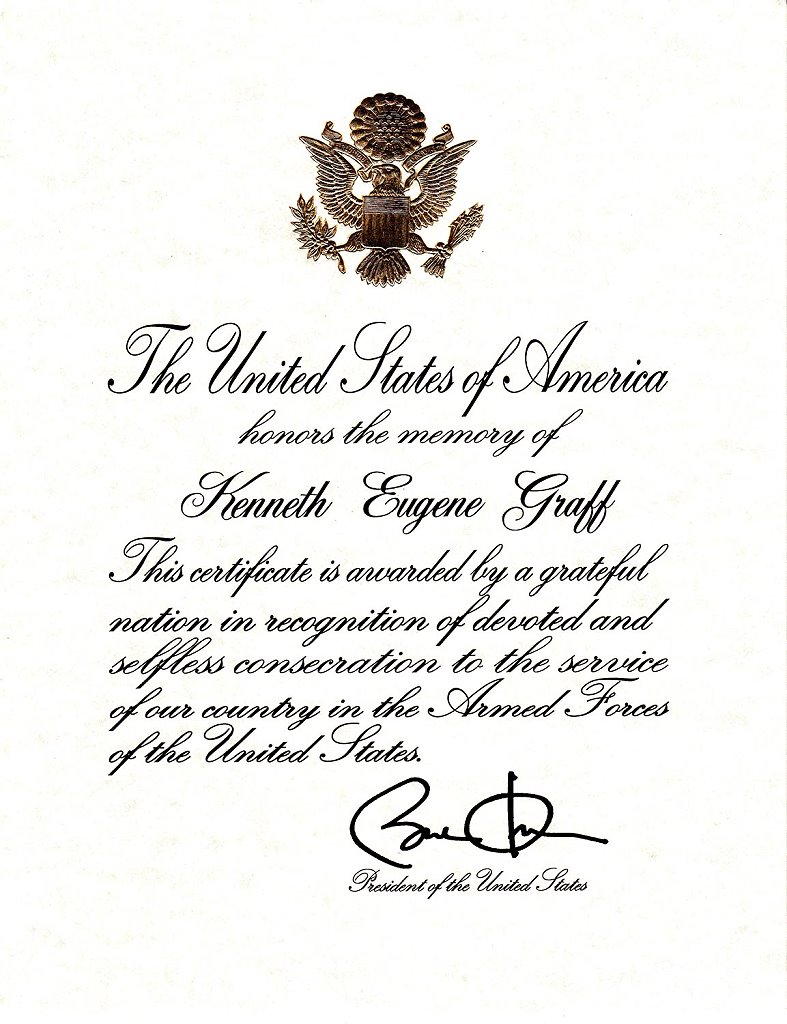 The United States of America
honors the memory of
Kenneth Eugene Graff
This certificate is awarded by a grateful
nation in recognition of devoted and
selfless consecration to the service
of our country in the Armed Forces
of the United States.
President of the United States